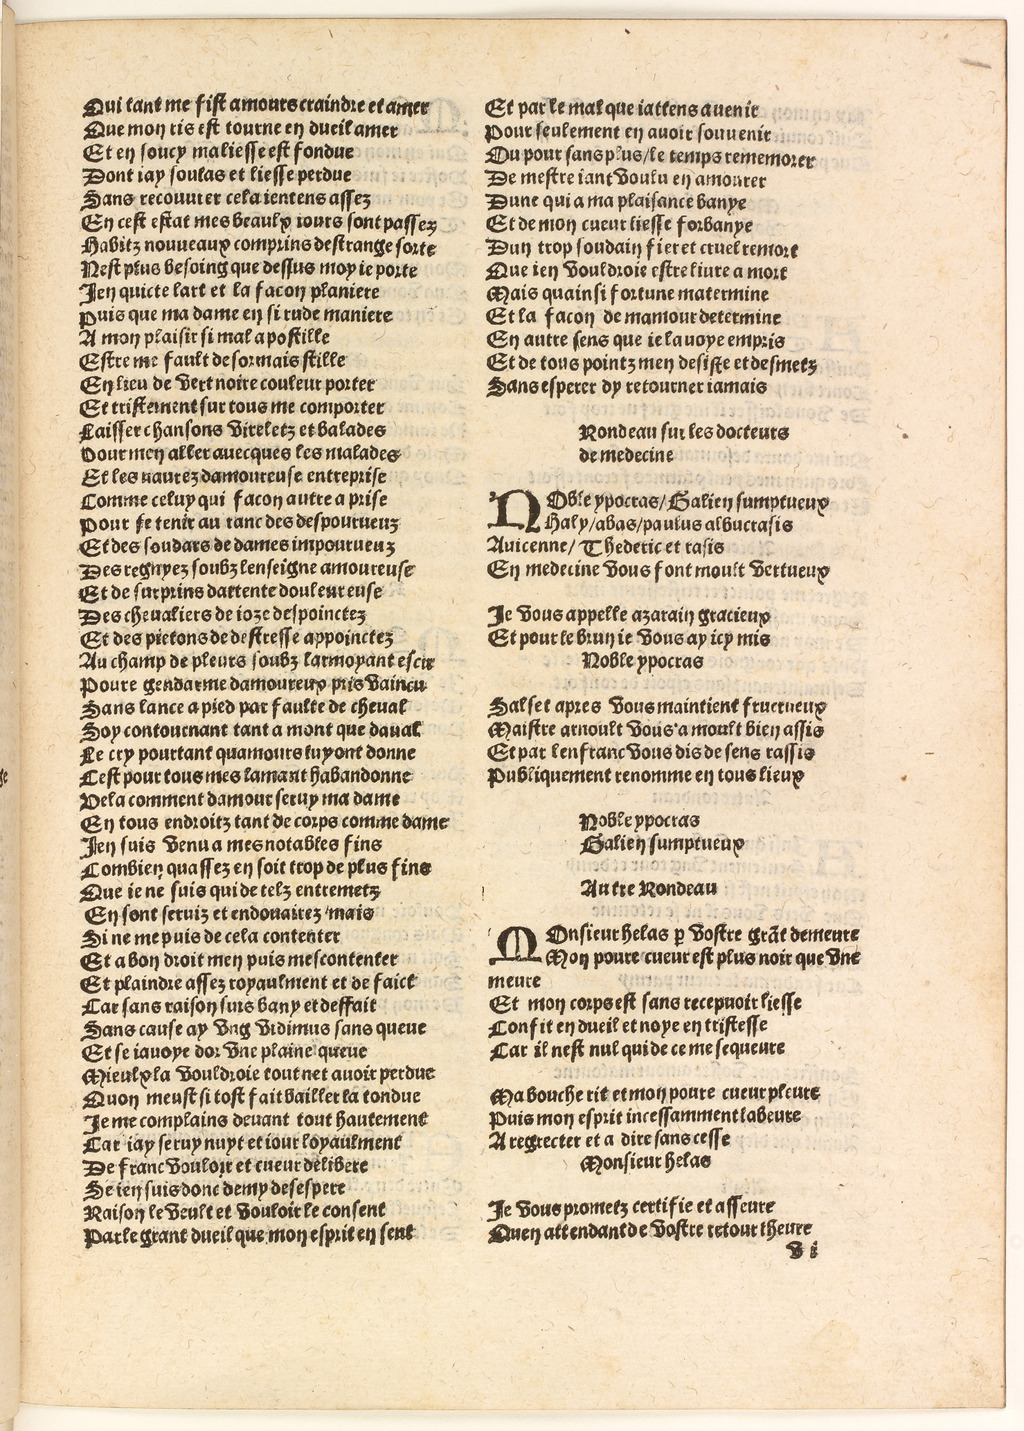 Qui tant me fist amours craindre et amer
Que mon ris est tourne en dueil amer
Et en soucy ma liesse est fondue
Dont iay soulas et liesse perdue
Sans recouurer cela ientens assez
En cest estat mes beaulx iours sont passez
Habitz nouueaux comprins destrange sorte
Nest plus besoing que dessus moy ie porte
Jen quicte lart et la facon planiere
Puis que ma dame en si rude maniere
A mon plaisir si mal apostille
Estre me fault desormais stille
En lieu de vert noire couleur porter
Et tristement sur tous me comporter
Laisser chansons vireletz et balades
Pour men aller auecques les malades
Et les naurez damoureuse entreprise
Comme celuy qui facon autre a prise
Pour se tenir au ranc des despourueuz
Et des soudars de dames impourueuz
Des regnyez soubz lenseigne amoureuse
Et de surprins dattente douleureuse
Des cheualiers de ioze despoinctez
Et des pietons de destresse appoinctez
Au champ de pleurs soubz larmoyant escu
Poure gendarme damoureux pris vaincu
Sans lance a pied par faulte de cheual
Soy contournant tant a mont que daual
Le cry pourtant quamours luy ont donne
Cest pour tous mes lamant habandonne
Vela comment damour seruy ma dame
En tous endroitz tant de corps comme dame
Jen suis venu a mes notables fins
Combien quassez en soit trop de plus fins
Que ie ne suis qui de telz entremetz
En sont seruiz et endouairez mais
Si ne me puis de cela contenter
Et a bon droit men puis mescontenter
Et plaindre assez royaulment et de faict
Car sans raison surs bany et deffait
Sans cause ay vng vidimus sans queue
Et se iauoye dor vne plaine queue
Mieulx la vouldroie tout net auoir perdue
Quon meust si tost fait bailler la tondue
Je me complains deuant tout hautement
Car iay seruy nuyt et iour loyaulment
De franc vouloir et cueur delibere
Se ien suis donc demy desespere
Raison le veult et vouloir le consent
Par le grant dueil que mon esprit en sent
Et par le mal que iattens auenir
Pour seulement en auoir souuenir
Ou pour sans plus/le temps rememorer
De mestre iant voulu en amourer
Dune qui a ma plaisance banye
Et de mon cueur liesse forbanye
Dun trop soudain fier et cruel remort
Que ien vouldroie estre liure a mort
Mais quainsi fortune matermine
Et la facon de mamour determine
En autre sens que ie lauoye empris
Et de tous pointz men desiste et desmetz
Sans esperer dy retourner iamais
Rondeau sur les docteurs
de medecine
NOble ypocras/Galien sumptueux
Haly/abas/paulus albucrasis
Auicenne/Thederic et rasis
En medecine vous font moult vertueux
Je vous appelle azarain gracieux
Et pour le brun ie vous ay icy mis
Noble ypocras
Salset apres vous maintient fructueux
Maistre arnoult vous a moult bien assis
Et par lenfranc vous dis de sens rassis
Publiquement renomme en tous lieux
Noble ypocras
Galien sumptueux
Autre Rondeau
MOnsieur helas p̱ vostre grãt demeure
Mon poure cueur est plus noir que vne
meure
Et mon corps est sans recepuoir liesse
Confit en dueil et noye en tristesse
Car il nest nul qui de ce me sequeure
Ma bouche rit et mon poure cueur pleure
Puis mon esprit incessamment labeure
A regrecter et a dire sans cesse
Monsieur helas
Je vous prometz certifie et asseure
Quen attendant de vostre retour lheure
v i